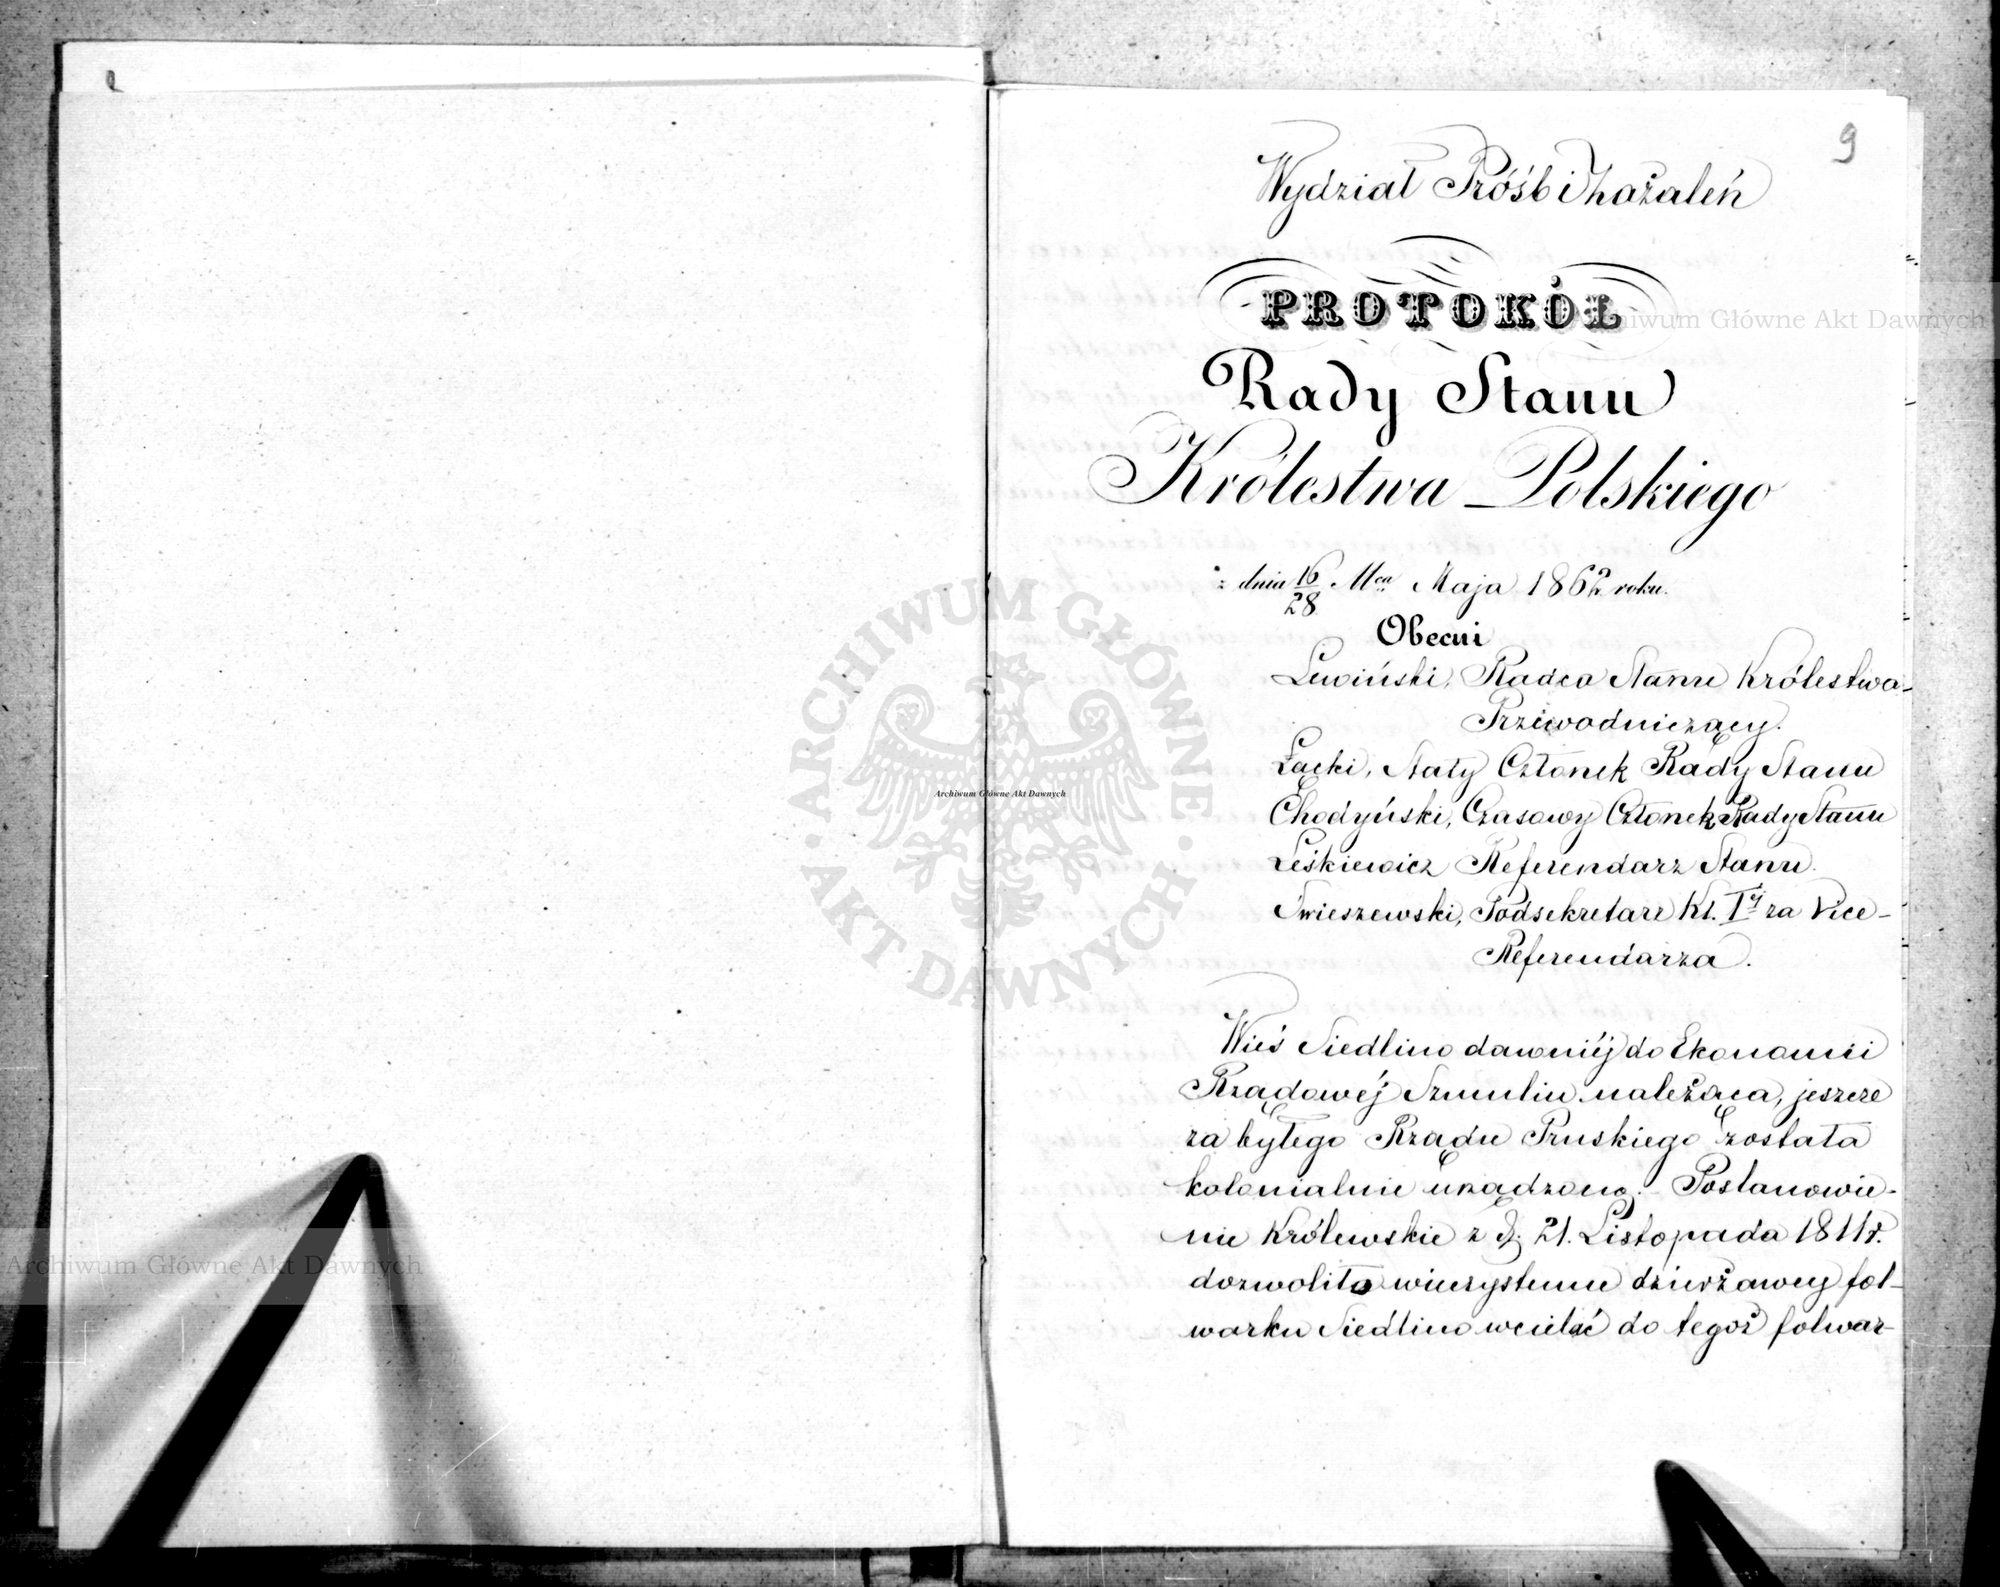 9
Wydział Próśb i Zażaleń
PROTOKÓŁ
Rady Stanu
Królestwa Polskiego
z dnia 16/28 Mca Maja 1862 roku.
Obecni
Lewiński, Radca Stanu Królestwa
Przewodniczący.
Łącki, Stały Członek Rady Stanu
Chodyński, Czasowy Członek Rady Stanu
Leśkiewicz Referendarz Stanu.
Świeszewski, Podsekretarz Kl. Iéj za Vice-
Referendarza.
Wieś Siedlino dawniéj do Ekonomii
Rządowéj Szmulin należąca, jeszcze
za byłego Rządu Pruskiego została
kolonialnie urządzoną. Postanowie-
nie Królewskie z d. 21. Listopada 1811 r.
dozwoliło wieczystemu dzierżawcy fol-
warku Siedlino wcielać do tegoż folwar-
ARCHIWUM GŁÓWNE AKT DAWNYCH
Archiwum Główne Akt Dawnych
Archiwum Główne Akt Dawnych
Archiwum Główne Akt Dawnych